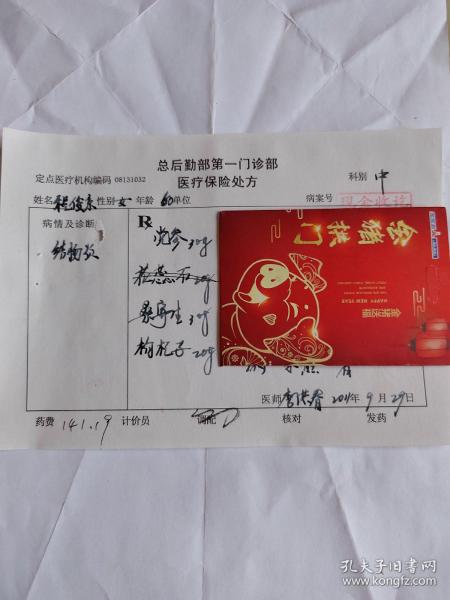 总后勤部第一门诊部
定点医疗机构编码 08131032
医疗保险处方
科别 中
姓名 性别 女 年龄 60 单位
病案号
现金收讫
病情及诊断
R
党参 30g
桑寄生 30g
枸杞子 20g
金猪拱门
HAPPY NEW YEAR
金猪送福
医师 2011年9月29日
药费 141.19 计价员 调配 核对 发药
孔夫子旧书网
www.kongfz.com